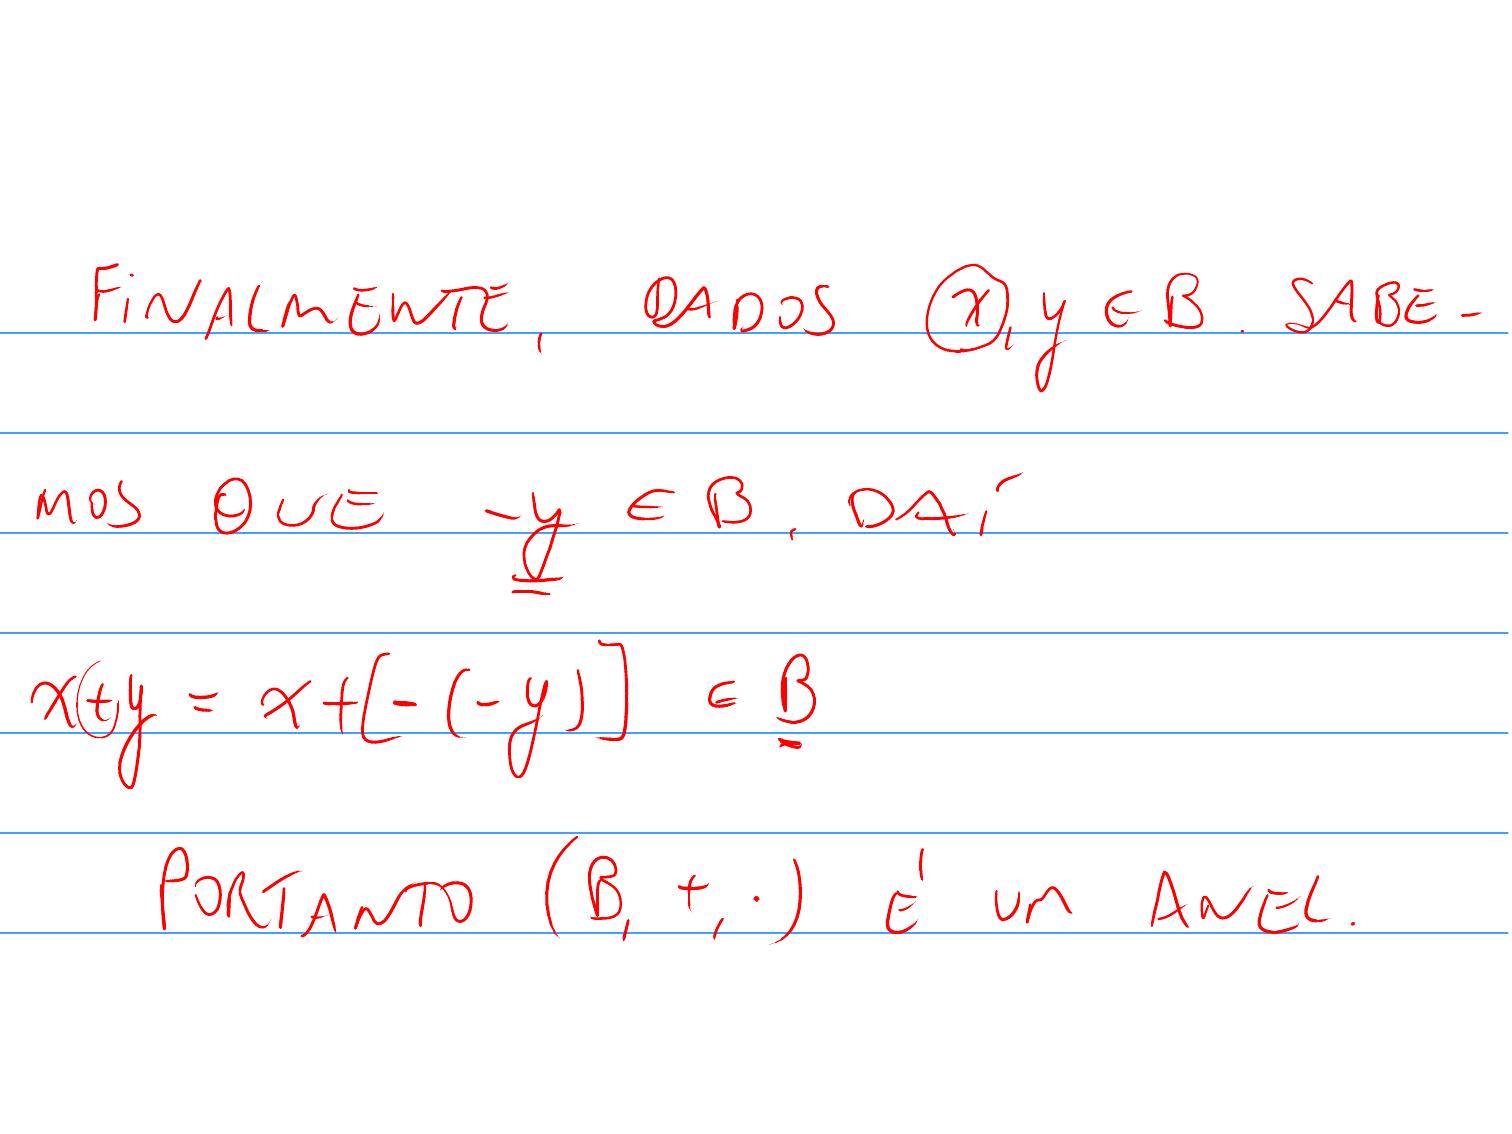 FINALMENTE, DADOS x, y ∈ B. SABE-
MOS QUE -y ∈ B, DAÍ
x+y = x+[-(-y)] ∈ B
PORTANTO (B, +, ·) É UM ANEL.